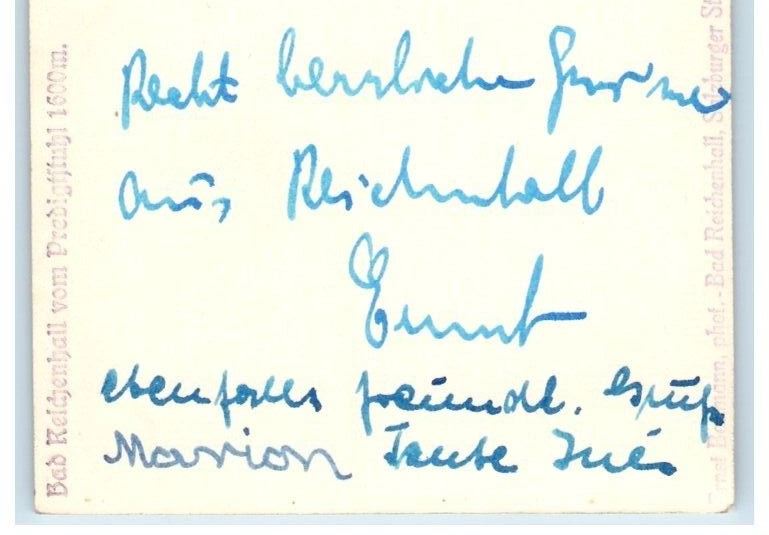 Recht herzliche Grüsse
aus Reichenhall
Ernst
ebenfalls freundl. Gruß
Marion Tante Inés
Bad Reichenhall vom Predigtstuhl 1600m.
phot.-Bad Reichenhall, Salzburger